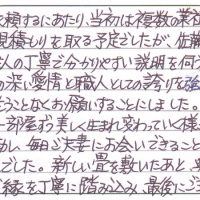 頼するにあたり、当初は複数の業
見積もりを取る予定でしたが、佐
人の丁寧で分かりやすい説明を伺
の深い愛情と職人としての誇りを強
うことなくお願いすることにしました。
一部屋ずつ美しく生まれ変わっていく様
し、毎日ご夫妻にお会いできること
でした。新しい畳を敷いたあと、
縁を丁寧に踏み込み、最後にご